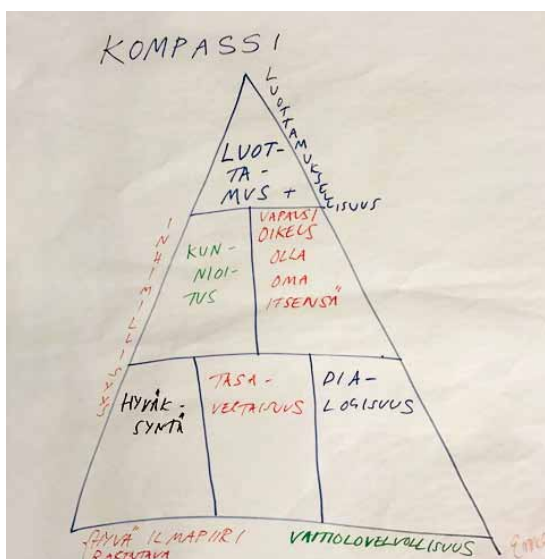 KOMPASSI
LUOTTAMUKSELLISUUS
LUOT-
TA-
MUS +
INHIMILLISYYS
KUN-
NIOI-
TUS
VAPAUS/
OIKEUS
OLLA
OMA
ITSENSÄ
HYVÄK-
SYNTÄ
TASA-
VERTAISUUS
DIA-
LOGISUUS
HYVÄ ILMAPIIRI
VAITIOLOVELVOLLISUUS